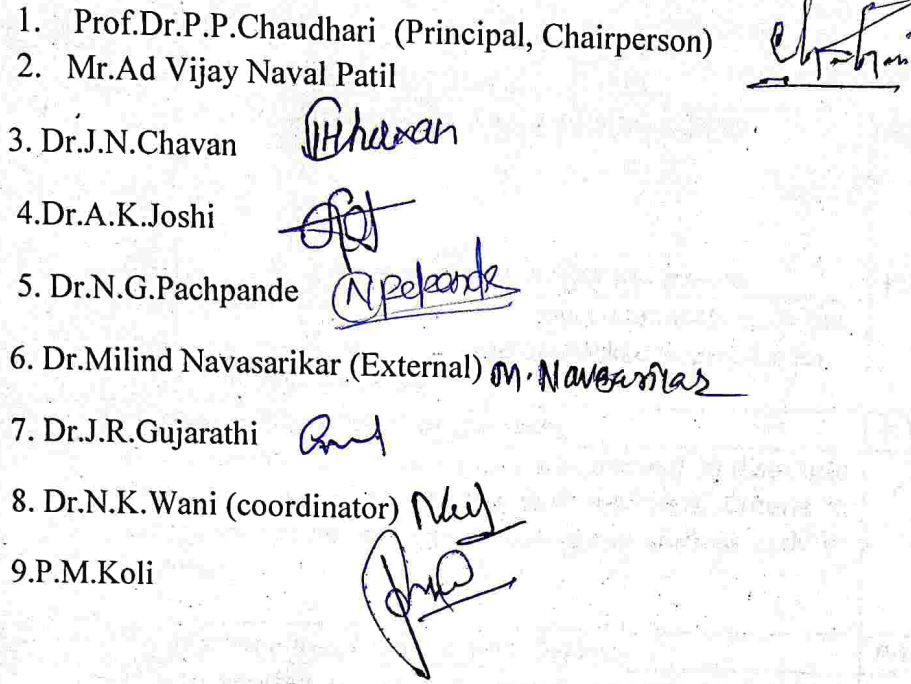 1. Prof.Dr.P.P.Chaudhari (Principal, Chairperson)
2. Mr.Ad Vijay Naval Patil
3. Dr.J.N.Chavan
4.Dr.A.K.Joshi
5. Dr.N.G.Pachpande
6. Dr.Milind Navasarikar (External) M. Navasarikar
7. Dr.J.R.Gujarathi
8. Dr.N.K.Wani (coordinator)
9.P.M.Koli